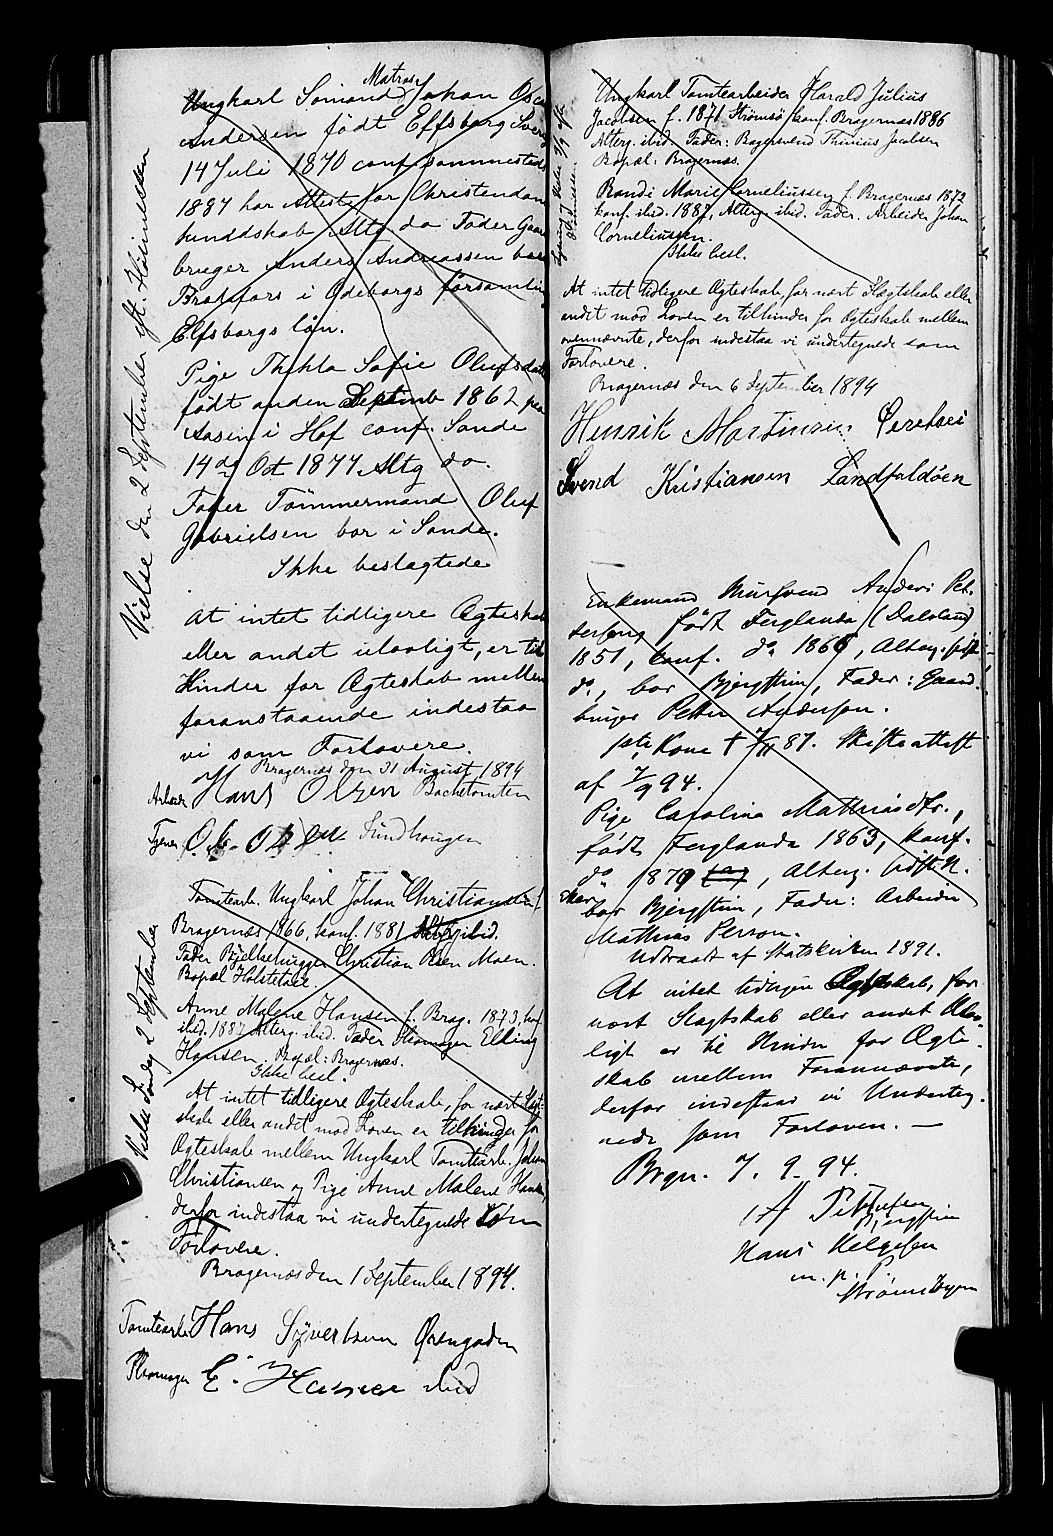 Vielse den 2 September eft. Høimessen
Matros
Ungkarl Sömand Johan Osca
Andersen født Elfsborg Sver
14 Juli 1870 conf sammesteds
1887 har Attest for Christendom
kunddskab Altg do Fader Gaar
bruger Anders Andreassen bor
i Ödeborgs församlin
Elfsborgs län.
Pige Thekla Sofie Olufsdatt
født anden Septemb 1862 paa
Aasen i Hof conf. Sande
14de Oct 1877 Altg do.
Fader Tömmermand Oluf
Gabrielsen bor i Sande.
Ikke beslægtede
At intet tidligere Ægteskab
eller andet ulovligt, er til
Hinder for Ægteskab mellem
foranstaaende indestaa
vi som Forlovere.
Bragernæs den 31 August 1894
Arbeider Hans Olsen Bachetomten
Tjener O. Olsen Sundhaugen
Vielse Søndag 2 September
Tomtearb. Ungkarl Johan Christiansen f.
Bragernæs 1866, konf. 1881 Alterg. ibid.
Fader Bjelkehugger Christian Olsen Moen.
Bopæl Holstetale.
Anne Malene Hansen f. Brag. 1873, konf
ibid. 1887 Alterg. ibid. Fader Skomager Elling
Hansen. Bopæl: Bragernæs.
Ikke besl.
At intet tidligere Ægteskab, for nært Slægt-
skab eller andet mod Loven er tilhinder for
Ægteskab mellem Ungkarl Tomtearb. Johan
Christiansen og Pige Anne Malene Hansen
derfor indestaa vi undertegnede som
Forlovere.
Bragernæs den 1 September 1894.
Tomtearb Hans Syvertsen Øvengaden
Skomager E. Hansen ibid
Ungkarl Tomtearbeider Harald Julius
Jacobsen f. 1871 Strømsø konf. Bragernæs 1886
Alterg. ibid. Fader: Bagersvend Thinius Jacobsen
Bopæl: Bragernæs.
Randi Marie Corneliussen f. Bragernæs 1872
konf. ibid. 1887, Alterg. ibid. Fader. Arbeider Johan
Corneliussen.
Ikke besl.
At intet tidligere Ægteskab, for nært Slægtskab eller
andet mod Loven er tilhinder for Ægteskab mellem
ovennævnte, derfor indestaa vi undertegnede som
Forlovere.
Bragernæs den 6 September 1894
Henrik Martinsen
Svend Kristiansen Landfaldöen
Enkemand Mursvend Anders Pet-
tersen født Ferglanda (Dalsland)
1851, konf. do 1866, Alterg. sidst
do, bor Bjergstien, Fader: Gaard-
bruger Petter Anderson.
sidste Kone † 7/11 87. Skifteattest
af 7/9 94.
Pige Carolina Mathiasdtr.,
født Ferglanda 1863, konf.
do 1879, Alterg. sidst N.
Eker
bor Bjergstien, Fader: Arbeider
Mathias Person.
Udtraadt af Statskirken 1891.
At intet tidligere Ægteskab, for
nært Slægtskab eller andet Ulov-
ligt er til Hinder for Ægte-
skab mellem Forannævnte,
derfor indestaar vi Underteg-
nede som Forlovere. —
Brgn. 7. 9. 94.
Bjergstien
Hans Helgesen
m. p. P.